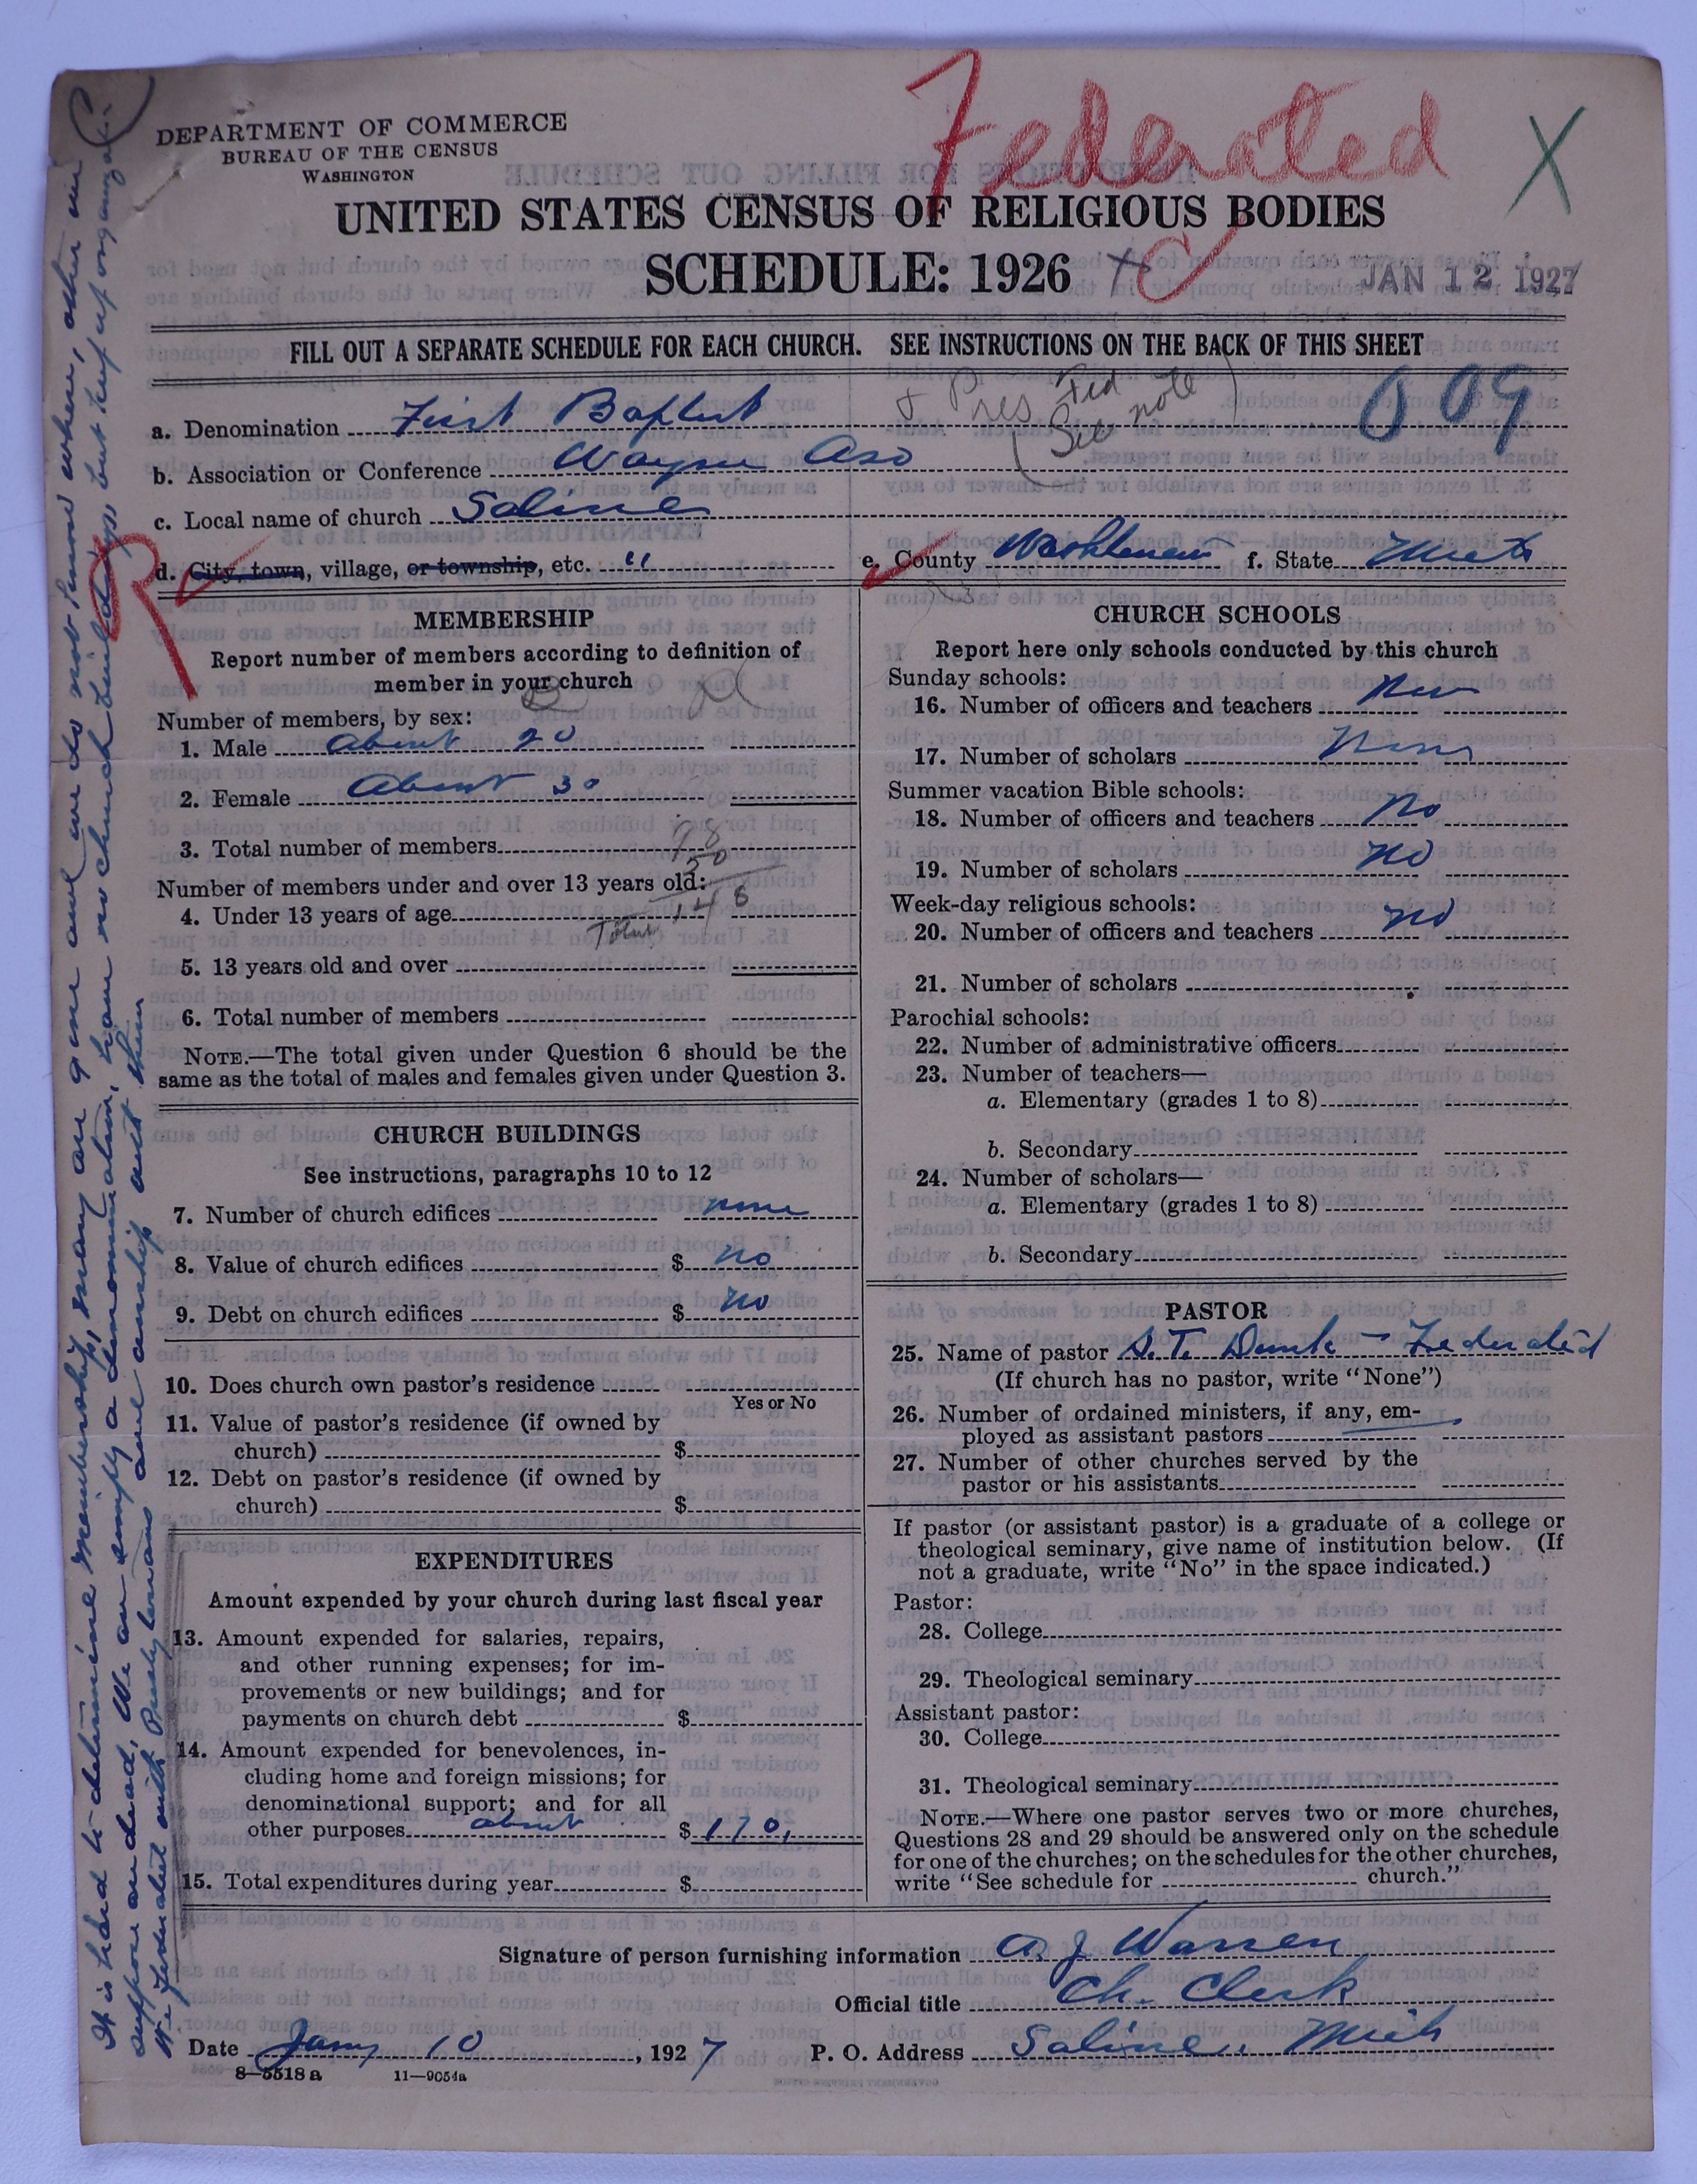 Federated
X
DEPARTMENT OF COMMERCE
BUREAU OF THE CENSUS
WASHINGTON
UNITED STATES CENSUS OF RELIGIOUS BODIES
SCHEDULE: 1926
JAN 12 1927
FILL OUT A SEPARATE SCHEDULE FOR EACH CHURCH. SEE INSTRUCTIONS ON THE BACK OF THIS SHEET
& Pres Fed
(See note)
009
a. Denomination First Baptist
b. Association or Conference Wayne Aso
c. Local name of church Saline
d. City, town, village, or township, etc. "
e. County Washtenaw f. State Mich
R
MEMBERSHIP
Report number of members according to definition of
member in your church
Number of members, by sex:
1. Male About 20
2. Female About 30
3. Total number of members 98
50
Number of members under and over 13 years old:
4. Under 13 years of age Total 148
5. 13 years old and over
6. Total number of members
NOTE.—The total given under Question 6 should be the
same as the total of males and females given under Question 3.
CHURCH BUILDINGS
See instructions, paragraphs 10 to 12
7. Number of church edifices none
8. Value of church edifices $ no
9. Debt on church edifices $ no
10. Does church own pastor's residence
Yes or No
11. Value of pastor's residence (if owned by
church) $
12. Debt on pastor's residence (if owned by
church) $
EXPENDITURES
Amount expended by your church during last fiscal year
13. Amount expended for salaries, repairs,
and other running expenses; for im-
provements or new buildings; and for
payments on church debt $
14. Amount expended for benevolences, in-
cluding home and foreign missions; for
denominational support; and for all
other purposes about $ 170,
15. Total expenditures during year $
CHURCH SCHOOLS
Report here only schools conducted by this church
Sunday schools:
16. Number of officers and teachers
17. Number of scholars None
Summer vacation Bible schools:
18. Number of officers and teachers no
19. Number of scholars no
Week-day religious schools:
20. Number of officers and teachers no
21. Number of scholars
Parochial schools:
22. Number of administrative officers
23. Number of teachers—
a. Elementary (grades 1 to 8)
b. Secondary
24. Number of scholars—
a. Elementary (grades 1 to 8)
b. Secondary
PASTOR
25. Name of pastor S. T. Dunk - Federated
(If church has no pastor, write "None")
26. Number of ordained ministers, if any, em-
ployed as assistant pastors
27. Number of other churches served by the
pastor or his assistants
If pastor (or assistant pastor) is a graduate of a college or
theological seminary, give name of institution below. (If
not a graduate, write "No" in the space indicated.)
Pastor:
28. College
29. Theological seminary
Assistant pastor:
30. College
31. Theological seminary
NOTE.—Where one pastor serves two or more churches,
Questions 28 and 29 should be answered only on the schedule
for one of the churches; on the schedules for the other churches,
write "See schedule for church."
Signature of person furnishing information A. J. Warren
Official title Ch. Clerk
Date Jany 10, 1927 P. O. Address Saline, Mich
8—5518 a 11—9054a
It is hard to determine membership, many are gone and we do not know where, others we
suppose are dead, We are simply a denomination, have no church buildings but keep up organization
We federated with Presbyterians and worship with them